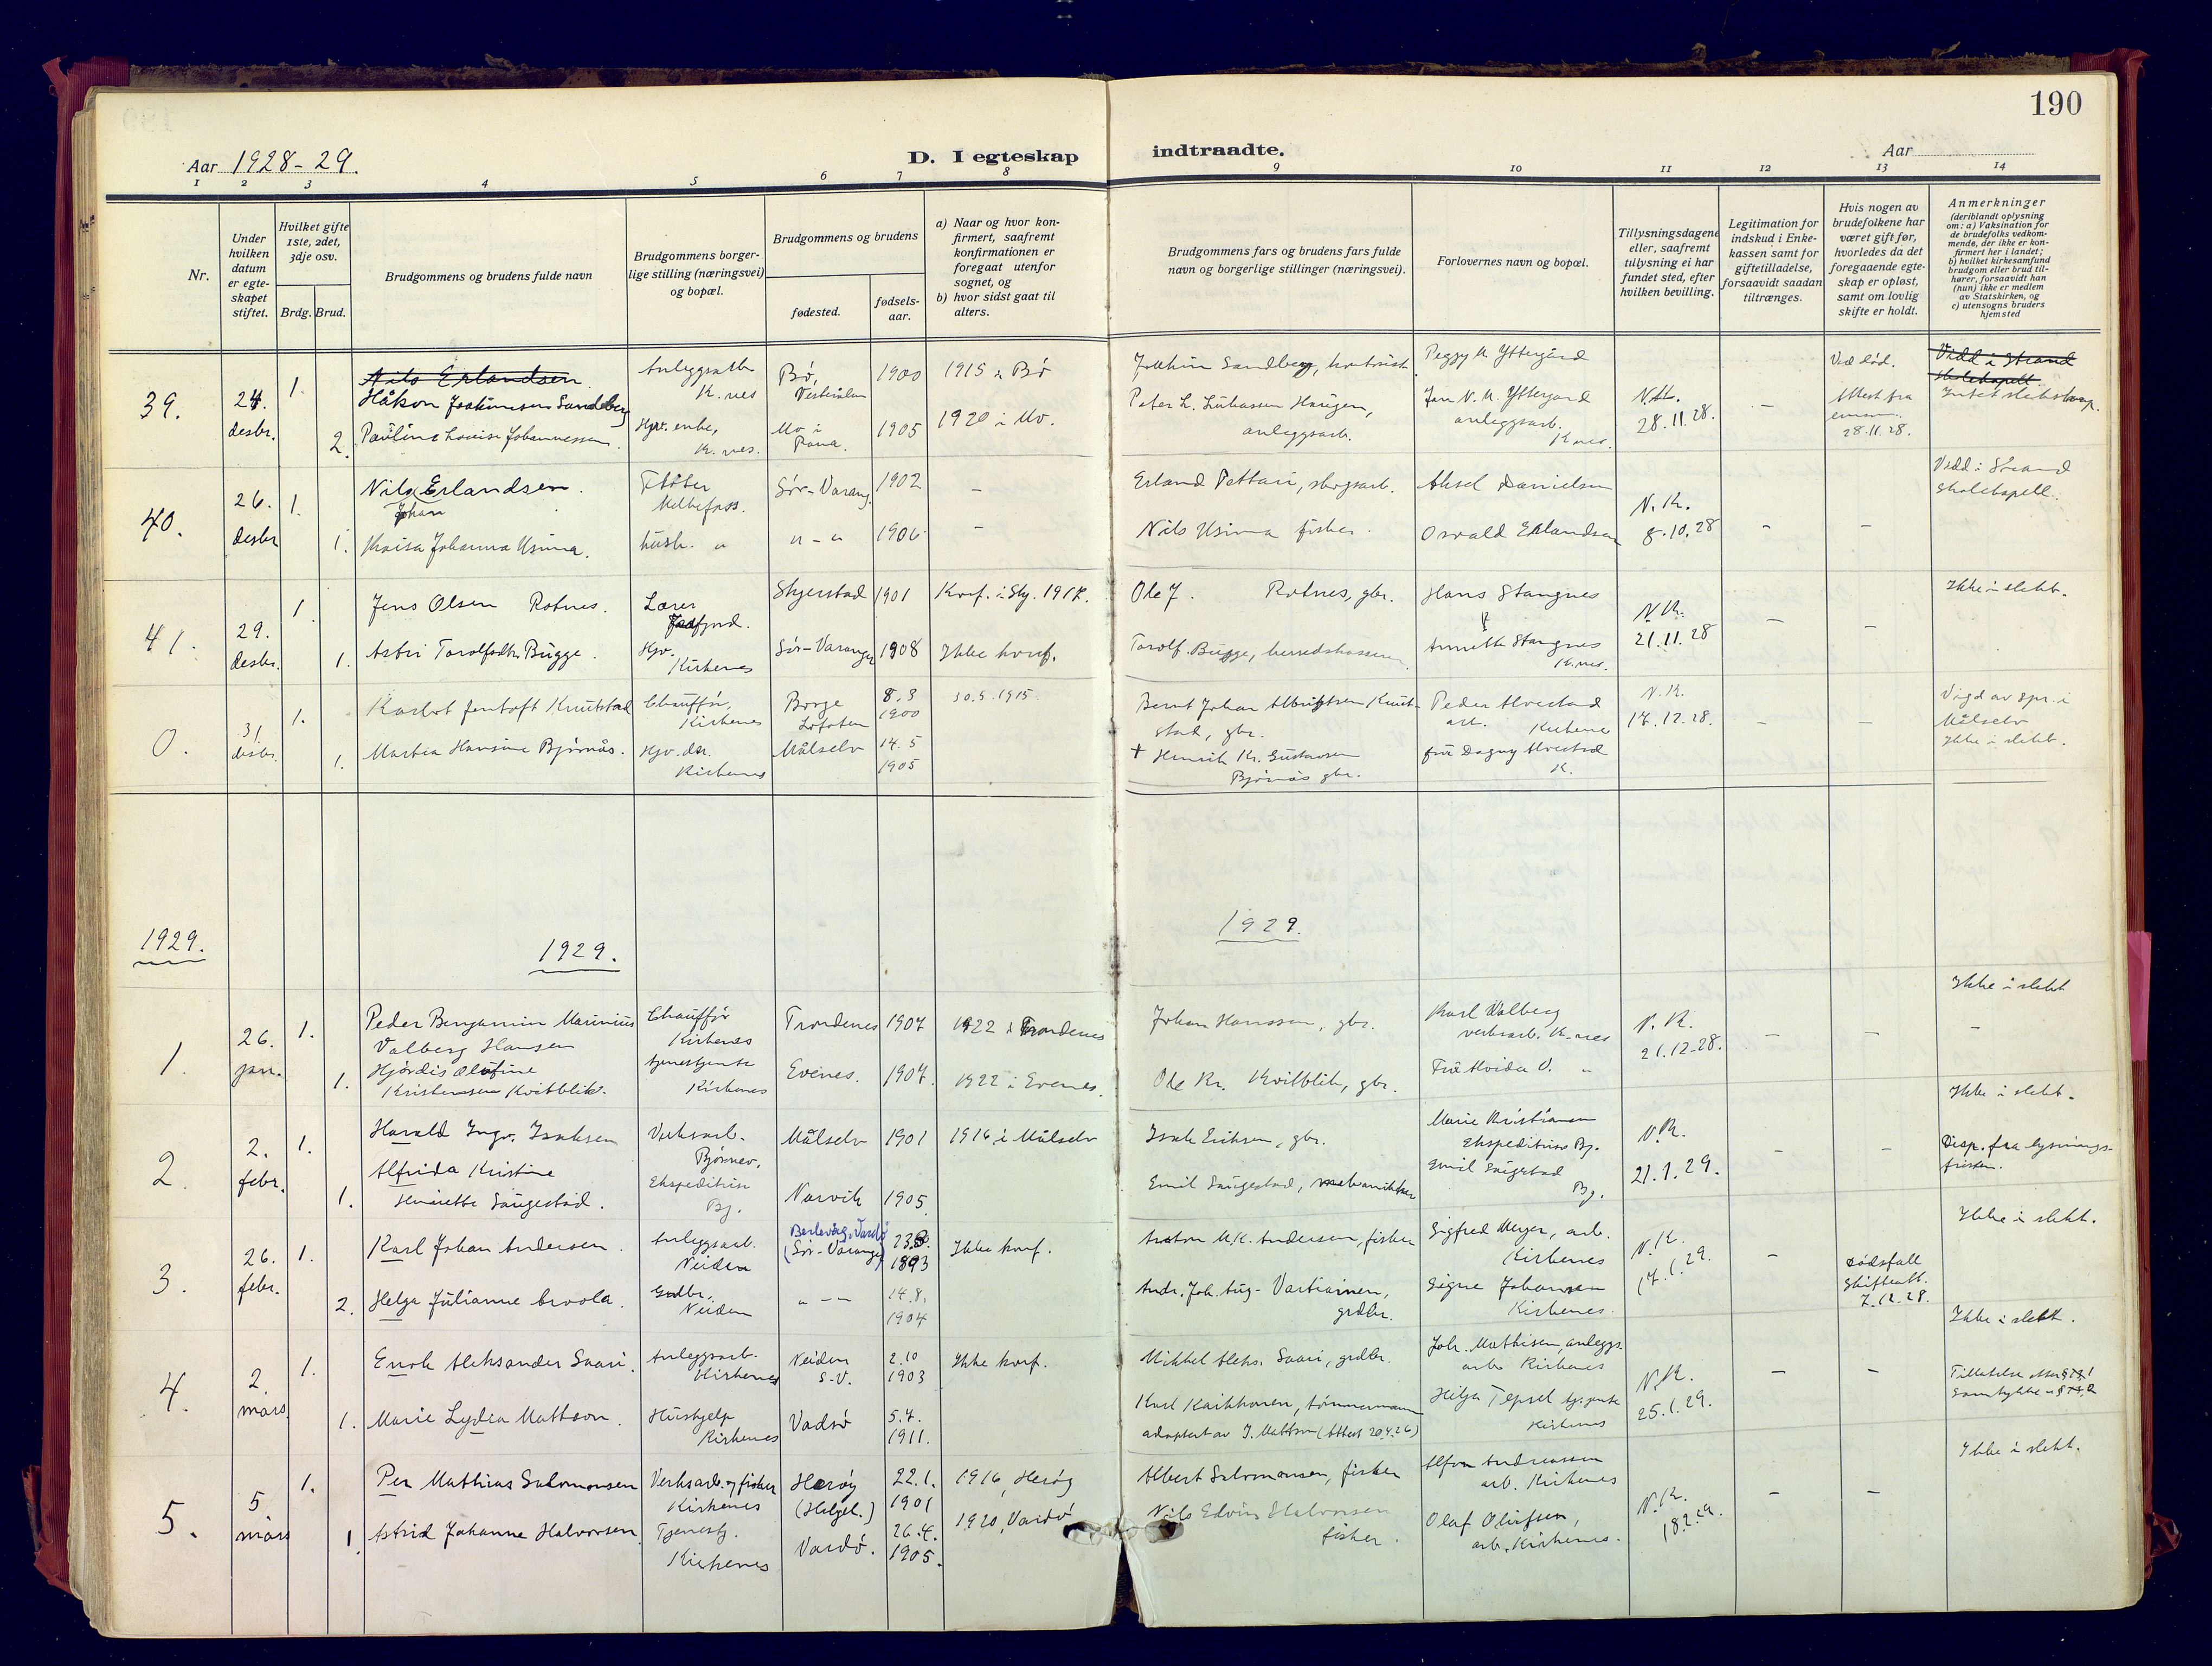 190
Aar 1928-29.
D. I egteskap indtraadte.
Aar
1 2 3 4 5 6 7 8 9 10 11 12 13 14
Nr.
Under hvilken datum er egteskapet stiftet.
Hvilket gifte 1ste, 2det, 3dje osv.
Brdg. Brud.
Brudgommens og brudens fulde navn
Brudgommens borgerlige stilling (næringsvei) og bopæl.
Brudgommens og brudens
fødested.
fødselsaar.
a) Naar og hvor konfirmert, saafremt konfirmationen er foregaat utenfor sognet, og
b) hvor sidst gaat til alters.
Brudgommens fars og brudens fars fulde navn og borgerlige stillinger (næringsvei).
Forlovernes navn og bopæl.
Tillysningsdagene eller, saafremt tillysning ei har fundet sted, efter hvilken bevilling.
Legitimation for indskud i Enkekassen samt for giftetilladelse, forsaavidt saadan tiltrænges.
Hvis nogen av brudefolkene har været gift før, hvorledes da det foregaaende egteskap er opløst, samt om lovlig skifte er holdt.
Anmerkninger (deriblandt oplysning om: a) Vaksination for de brudefolks vedkommende, der ikke er konfirmert her i landet; b) hvilket kirkesamfund brudgom eller brud tilhører, forsaavidt han (hun) ikke er medlem av Statskirken, og c) utensogns bruders hjemsted
39. 24. desbr. 1. Nils Erlandsen.
Håkon Joakimsen Sandberg
K.nes Bø, Vesterålen 1900 1915 i Bø
Sandberg, Peggy Yttergård
Ved død.
Vidd i Strand skolekapell
2. Pauline Louise Johannessen
K.nes. Mo i Rana. 1905 1920 i Mo.
Haugen, anleggsarb.
Yttergård anleggsarb. K.nes.
N.K. 28.11.28. –
Attest fra 28.11.28.
40. 26. desbr 1. Nils Erlandsen.
Johan
Fløter Sør-Varang. 1902 –
Erland Pettari, skogsarb. Aksel Danielsen
N.K. 8.10.28 – –
Vidd i Strand skolekapell.
1. Kaisa Johanna Usima.
hush. " " - " 1906 –
Nils Usima fisker. Osvald Erlandsen
41. 29. desbr. 1 Jens Olsen Rotnes.
Lærer Skjerstad 1901 Konf. i Skj. 1917.
Ole J. Rotnes, gbr. Hans Stangnes
N.K. 21.11.28 – –
Ikke i slekt.
1. Astri Torolfsdtr. Bugge.
Hjv. Kirkenes Sør-Varanger 1908 Ikke konf.
Torolf Bugge, herredskasserer. Annette Stangnes K.nes.
0. 31. desbr. 1. Karlot Jentoft Knutstad
Chauffør, Kirkenes Borge Lofoten 8.3 1900 30.5.1915.
Bernt Johan Albrigtsen Knutstad, gbr. Peder Alvestad arb. Kirkenes
N.K. 17.12.28. – –
Vigd av spr. i Målselv
Ikke i slekt.
1. Martea Hansine Bjørnås.
Hjv. dtr. Kirkenes Målselv 14.5 1905
+ Henrik Kr. Gustavsen Bjørnås gbr. frü Dagny Alvestad K.
1929. 1929. 1929.
1. 26. jan. 1. Peder Benjamin Marinius Valberg Hansen
Chauffør Kirkenes Trondenes 1907 1922 i Trondenes
Johan Hanssen, gbr. Karl Valberg verksarb. K.nes
N.K. 21.12.28. – – –
Ikke i slekt
1. Hjørdis Olufine Kristensen Kvitblik.
tjenestjente Kirkenes Evenes. 1907. 1922 i Evenes.
Ole Kr. Kvitblik, gbr. Frü Alvida V. "
2. 2. febr. 1. Harald Ingv. Isaksen
Verksarb. Bjørnev. Målselv 1901 1916 i Målselv
Isak Eriksen, gbr. Marie Kristiansen Ekspeditrise Bj.
N.K. 21.1.29. – –
Ikke i slekt.
Disp. fra lysningsfristen.
1. Alfrida Kristine Henriette Saugestad.
Ekspeditrise Bj. Narvik 1905.
Emil Saugestad, mekaniker Emil Saugestad Bj.
3. 26. febr. 1. Karl Johan Andersen.
Anleggsarb. Neiden Berlevåg, Vardø (Sør-Varanger) 23.8. 1893 Ikke konf.
Anton M.K. Andersen, fisker Sigfred Meyer, arb. Kirkenes
N.K. 17.1.29. –
Dødsfall Skifteatt. 7.12.28.
Ikke i slekt.
2. Helga Julianne
Neiden " – – 14.8. 1904
Andr. Joh. Aug. Vartiainen, grdbr. Signe Johansen Kirkenes.
4. 2. mars 1. Enok Aleksander Saari.
Anleggsarb. Kirkenes Neiden S.V. 2.10 1903 Ikke konf.
Mikkel Aleks. Saari, grdbr. Joh. Mathisen, anleggsarb. Kirkenes
N.K. 25.1.29. – –
Ikke i slekt.
1. Marie Lydia Mattson.
Hushjelp Kirkenes Vadsø 5.4. 1911.
Karl Kaikkonen, tømmermann adoptert av J. Mattson (Attest 20.4.26) Helga Tepsel Kirkenes
5. 5 mars 1. Per Mathias Salomonsen
Verksarb. og fisker Kirkenes Herøy (Helgel.) 22.1. 1901 1916, Herøy
Albert Salomonsen, fisker Alfon Andreassen arb. Kirkenes
N.K. 18.2.29. – –
Ikke i slekt.
1. Astrid Johanne Halvorsen.
Tjenestj. Kirkenes Vardø. 26.4. 1905. 1920, Vardø
Nils Edvin Halvorsen fisker. Olaf Olufsen, arb. Kirkenes.